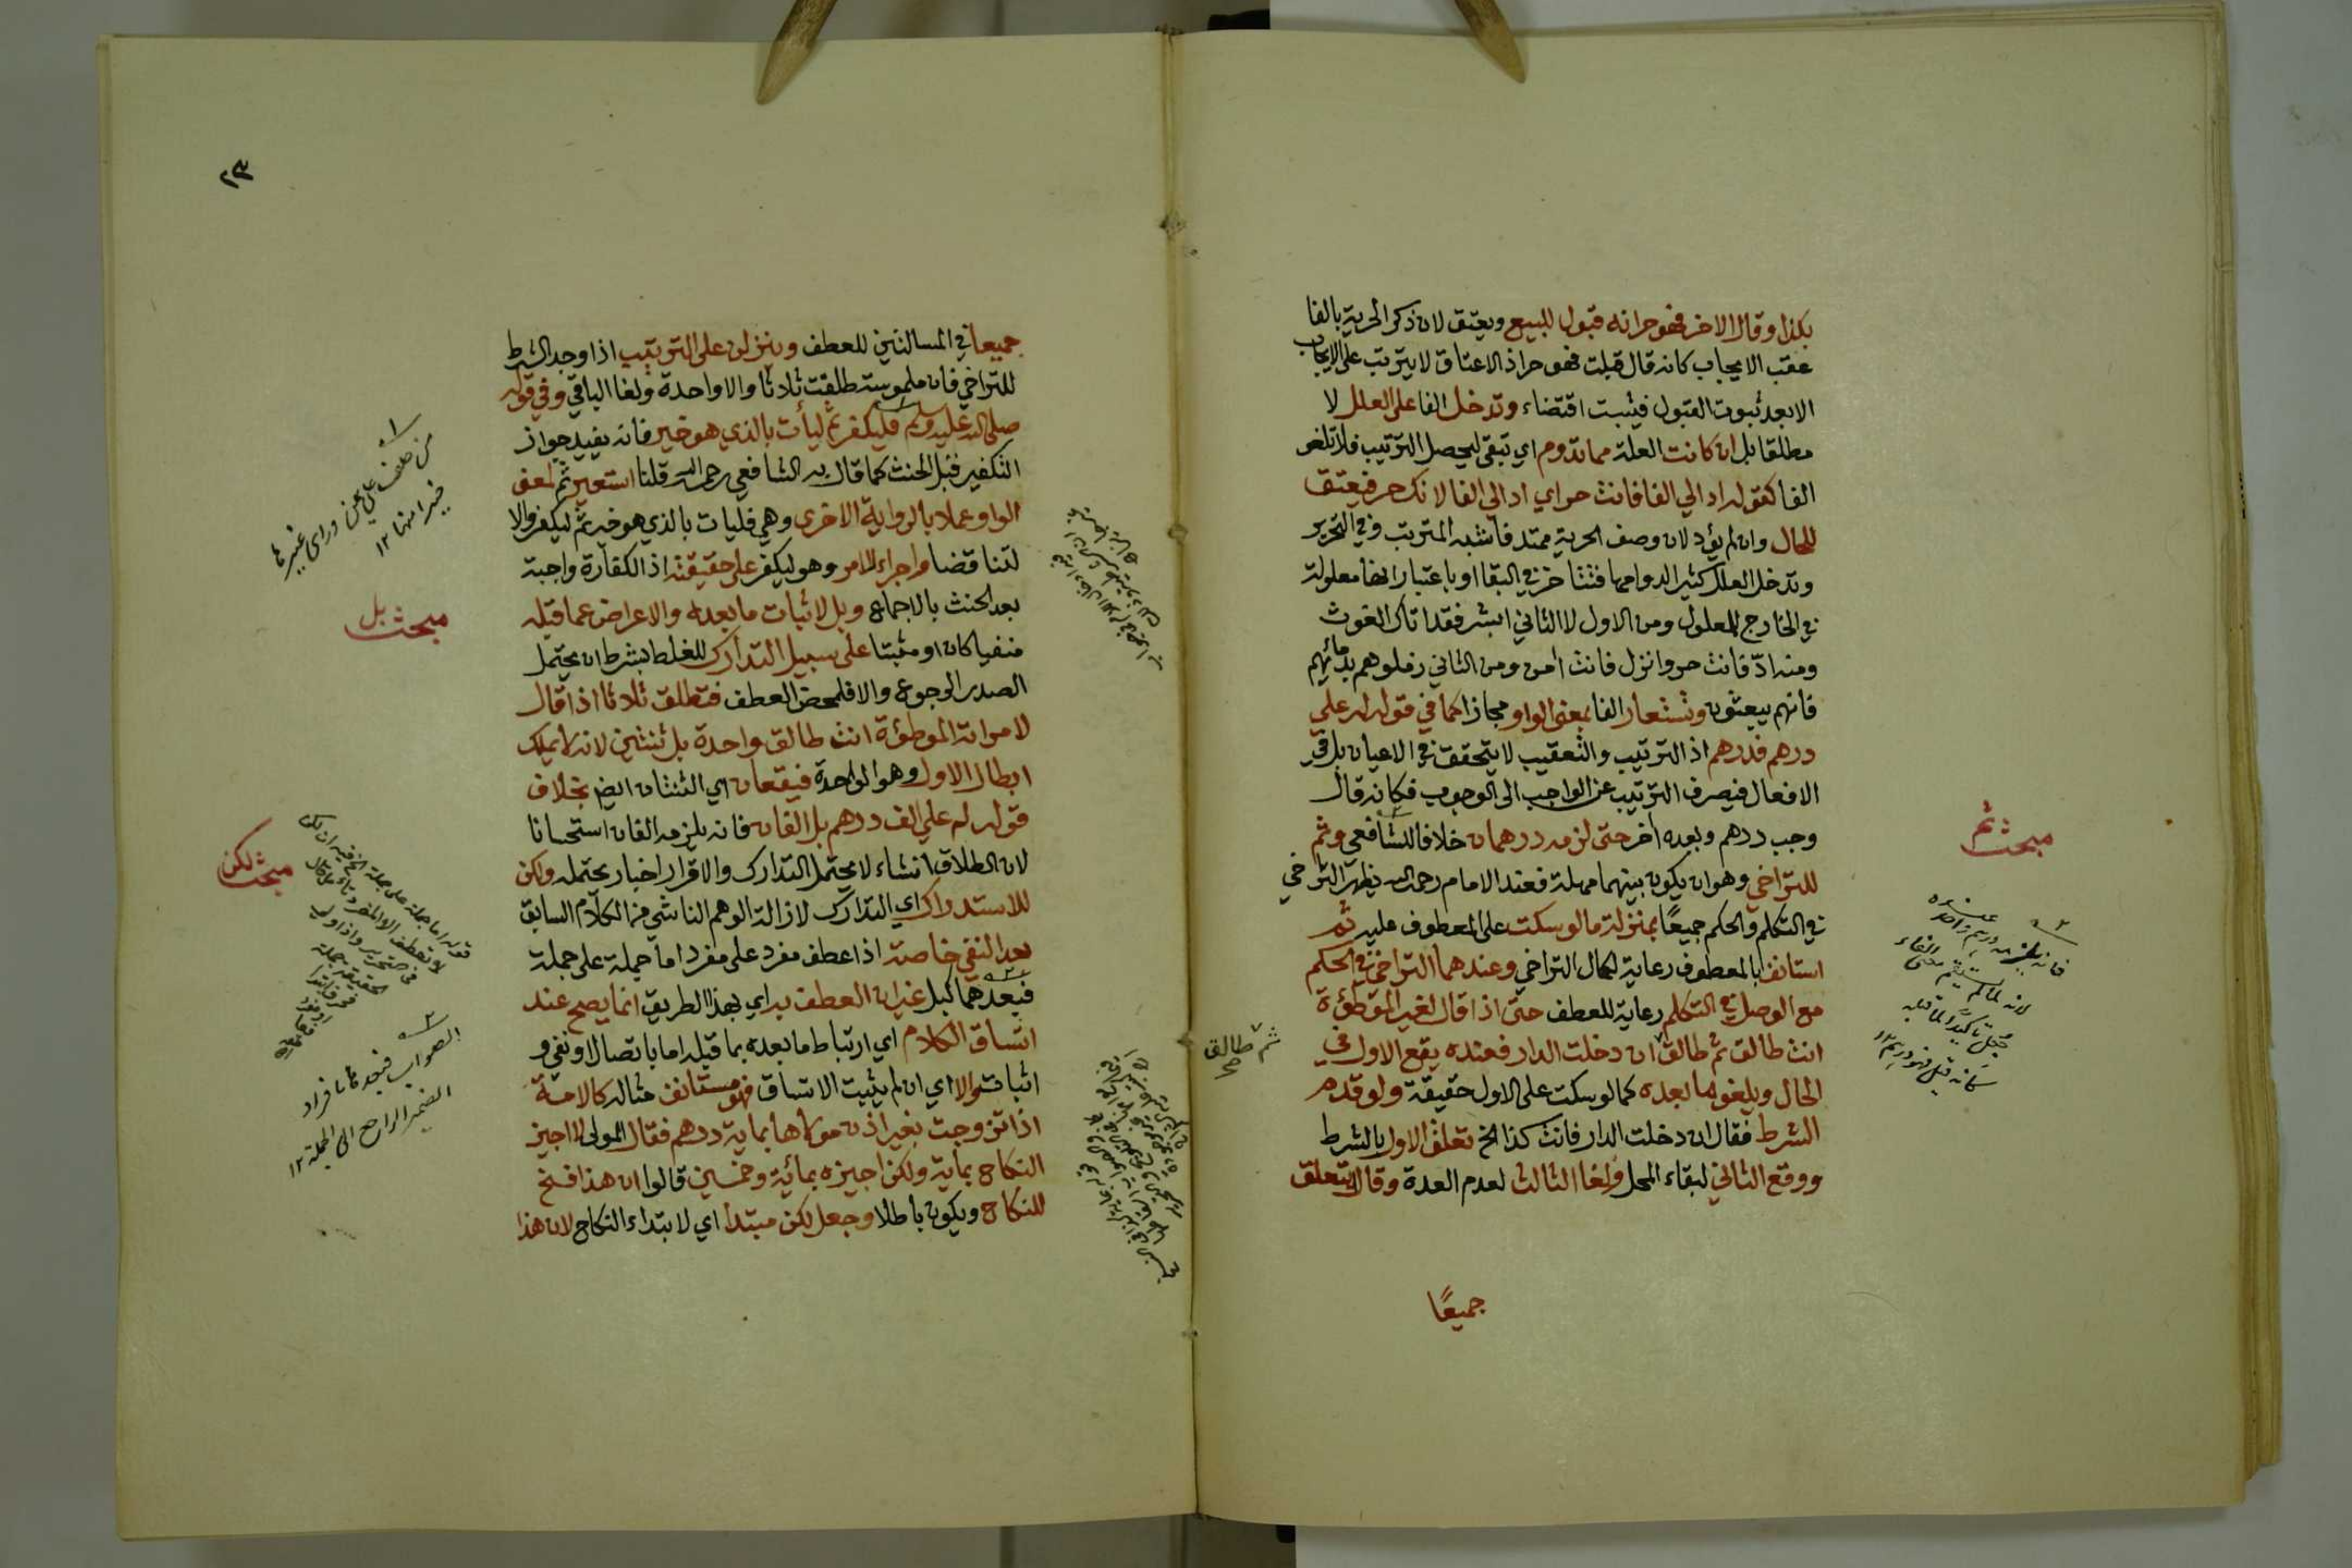 بكذا وقال الاخر فهو حر انه قبول للبيع ويعتق لان ذكر الحرية بالفا
عقب الايجاب كانه قال قبلت فهو حر اذ الاعتاق لا يترتب على الايجاب
الا بعد ثبوت القبول فيثبت اقتضاء وتدخل الفا على العلل لا
مطلقا بل ان كانت العلة مما تدوم اي تبقى ليحصل الترتيب فلا تلغو
الفا كقوله اد الي الفا فانت حر اي اد الي الفا لانك حر فيعتق
للحال وان لم يؤد لان وصف الحرية ممتد فاشبه المترتب وفي التحرير
وتدخل العلل كثيرا لدوامها فتتاخر في البقا او باعتبار انها معلولة
في الخارج للمعلول ومن الاول لا الثاني ابشر فقد اتاك الغوث
ومنه ادّ فانت حر وانزل فانت امن ومن الثاني زملوهم بدمائهم
فانهم يبعثون وتستعار الفا بمعنى الواو مجازا كما في قوله له علي
درهم فدرهم اذ الترتيب والتعقيب لا يتحقق في الاعيان بل في
الافعال فيصرف الترتيب عن الواجب الى الوجوب فكانه قال
وجب درهم وبعده اخر حتى لزمه درهمان خلافا للشافعي وثم
للتراخي وهو ان يكون بينهما مهلة فعند الامام رحمه الله يظهر التراخي
في التكلم والحكم جميعًا بمنزلة ما لو سكت على المعطوف عليه ثم
استانف بالمعطوف رعاية لكمال التراخي وعندهما التراخي في الحكم
مع الوصل في التكلم رعاية للعطف حتى اذا قال لغير الموطؤة
انت طالق ثم طالق ان دخلت الدار فعنده يقع الاول في
الحال ويلغو ما بعده كما لو سكت على الاول حقيقة ولو قدم
الشرط فقال ان دخلت الدار فانت كذا الخ تعلق الاول بالشرط
ووقع الثاني لبقاء المحل ولغا الثالث لعدم العدة وقالا يتعلق
جميعًا
مبحث ثم
فانه يلزمه درهم واحد عنده
كانه قيل فهو درهم ١٢
ثم طالق
صح
٢٣
جميعا في المسالتين للعطف وينزلن على الترتيب اذا وجد الشرط
للتراخي فان ملموسته طلقت ثلاثا والا واحدة ولغا الباقي وفي قوله
صلى الله عليه وسلم فليكفر ثم ليأت بالذي هو خير فانه يفيد جواز
التكفير قبل الحنث كما قال به الشافعي رحمه الله قلنا استعير ثم لمعنى
الواو عملا بالرواية الاخرى وهي فليات بالذي هو خير ثم ليكفر والا
لتناقضا واجراء للامر وهو ليكفر على حقيقته اذ الكفارة واجبة
بعد الحنث بالاجماع وبل لاثبات ما بعده والاعراض عما قبله
منفيا كان او مثبتا على سبيل التدارك للغلط بشرط ان يحتمل
الصدر الرجوع والا فلمحض العطف فتطلق ثلاثا اذا قال
لامراته الموطؤة انت طالق واحدة بل ثنتين لانه لا يملك
ابطال الاول وهو الواحدة فيقعان اي الثنتان ايض بخلاف
قوله له علي الف درهم بل الفان فانه يلزمه الفان استحسانا
لان الطلاق انشاء لا يحتمل التدارك والاقرار اخبار يحتمله ولكن
للاستدراك اي التدارك لازالة الوهم الناشي من الكلام السابق
بعد النفي خاصة اذا عطف مفرد على مفرد اما جملة على جملة
فبعدهما كبل غير ان العطف به اي بهذا الطريق انما يصح عند
اتساق الكلام اي ارتباط ما بعده بما قبله اما باتصال او نفي و
اثبات والا اي ان لم يثبت الاتساق فهو مستانف مثاله كالامة
اذا تزوجت بغير اذن مولاها بماية درهم فقال المولى لا اجيز
النكاح بماية ولكن اجيزه بمائة وخمسين قالوا ان هذا فسخ
للنكاح ويكون باطلا وجعل لكن مبتدا اي لابتداء النكاح لان هذا
من حلف على يمين وراى غيرها
خيرا منها ١٢
مبحث بل
مبحث لكن
الصواب فبعدها بافراد
الضمير الراجع الى الجملة ١٢